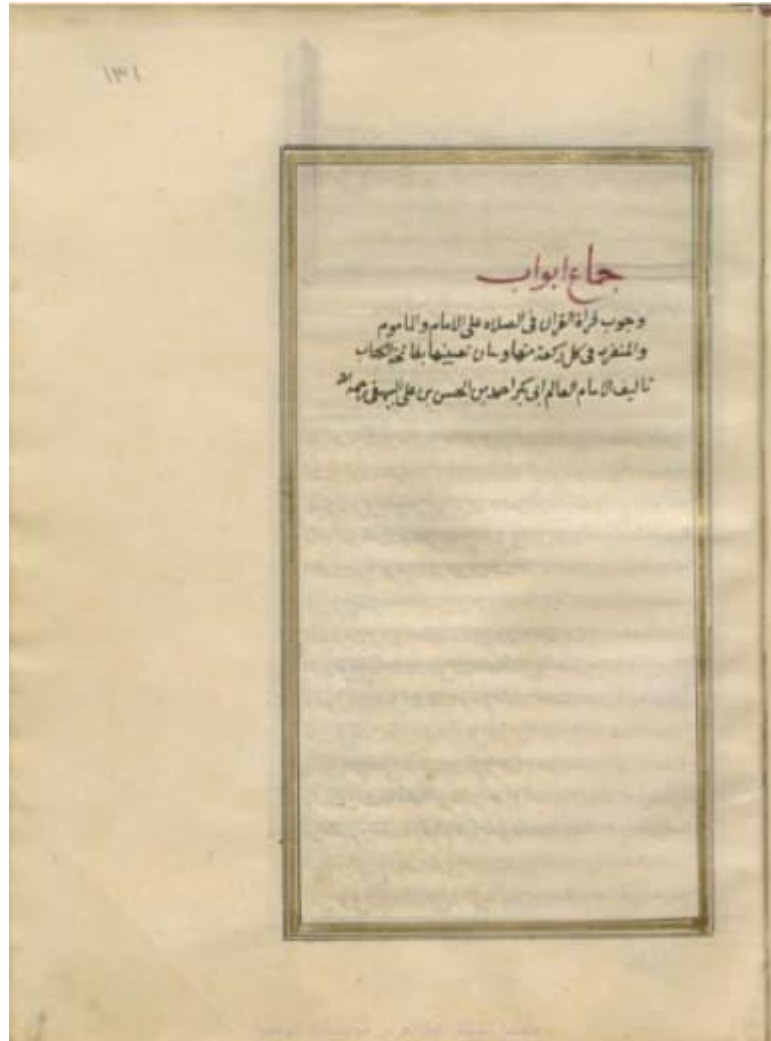 ١٣١
جماع ابواب
وجوب قراة القران فى الصلاه على الامام والماموم
والمنفرد فى كل ركعة منها وبيان تعيينها بفاتحة الكتاب
تاليف الامام العالم ابى بكر احمد بن الحسن بن على البيهقى رحمه الله